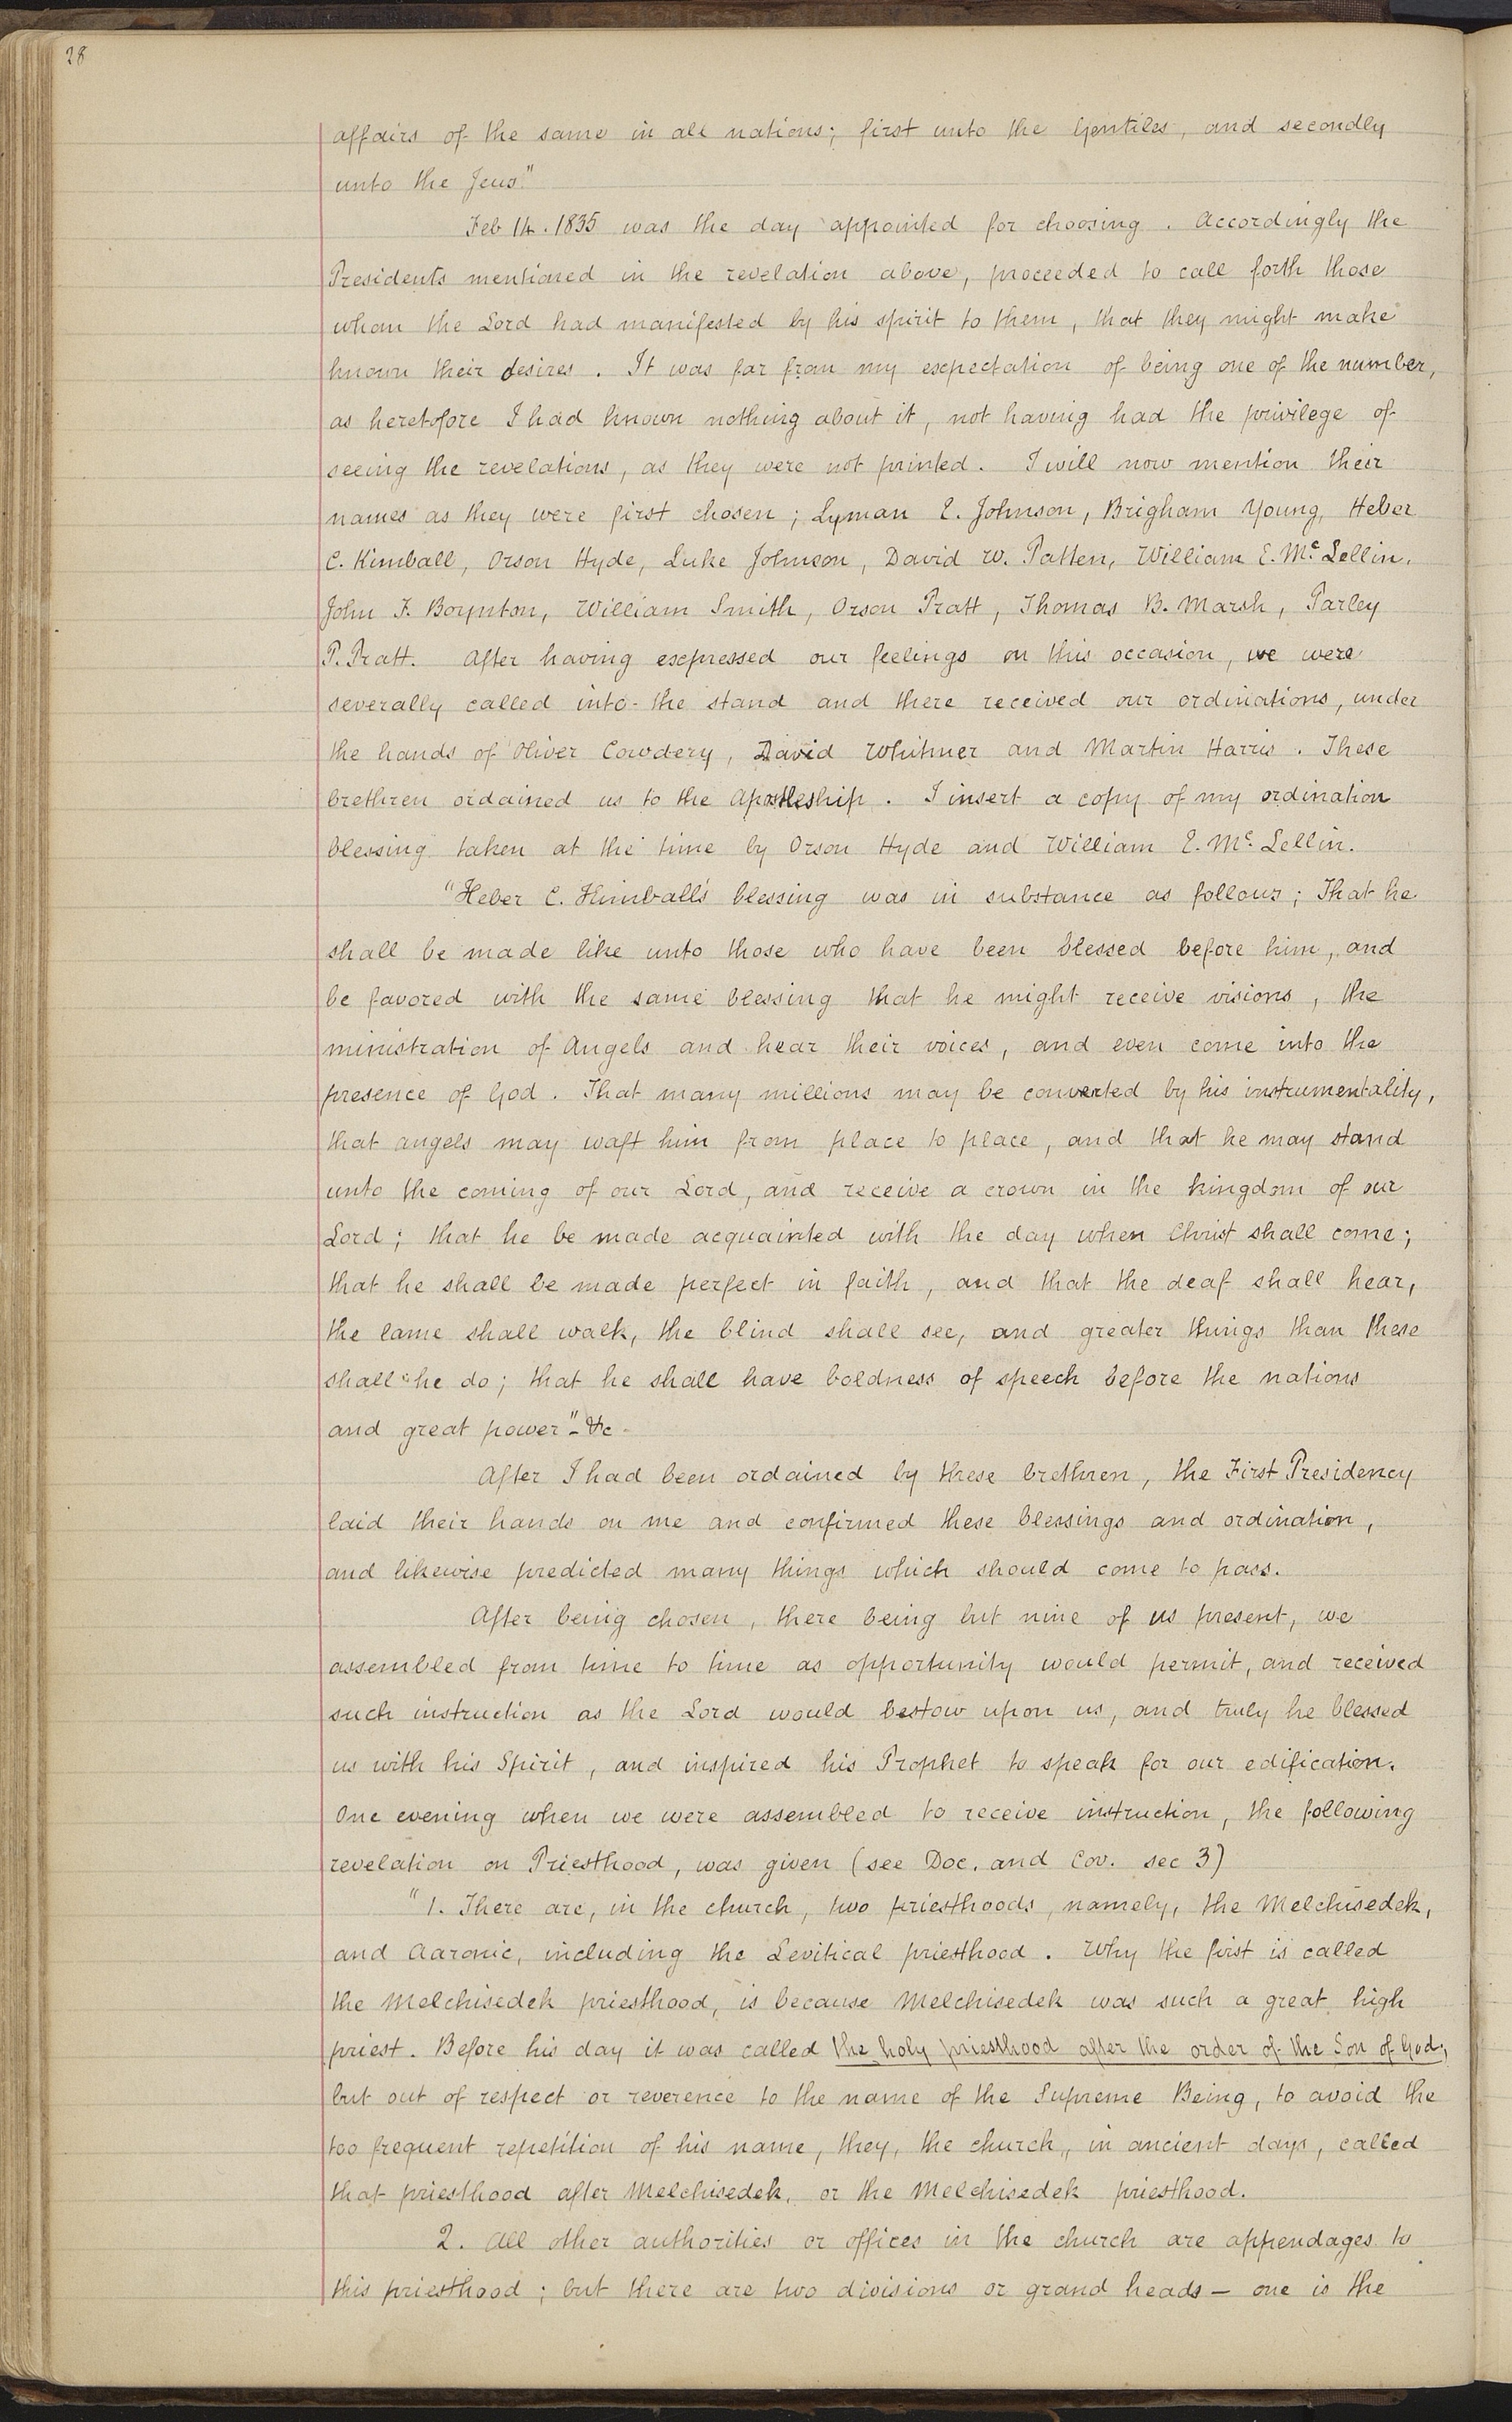 28
affairs of the same in all nations; first unto the Gentiles, and secondly
unto the Jews."
Feb 14. 1835 was the day appointed for choosing. Accordingly the
Presidents mentioned in the revelation above, proceeded to call forth those
whom the Lord had manifested by his spirit to them, that they might make
known their desires. It was far from my expectation of being one of the number,
as heretofore I had known nothing about it, not having had the privilege of
seeing the revelations, as they were not printed. I will now mention their
names as they were first chosen; Lyman E. Johnson, Brigham Young, Heber
C. Kimball, Orson Hyde, Luke Johnson, David W. Patten, William E. Mc Lellin,
John F. Boynton, William Smith, Orson Pratt, Thomas B. Marsh, Parley
P. Pratt. After having expressed our feelings on this occasion, we were
severally called into the stand and there received our ordinations, under
the hands of Oliver Cowdery, David Whitmer and Martin Harris. These
brethren ordained us to the Apostleship. I insert a copy of my ordination
blessing taken at the time by Orson Hyde and William E. Mc Lellin.
"Heber C. Kimball's blessing was in substance as follows; That he
shall be made like unto those who have been blessed before him, and
be favored with the same blessing that he might receive visions, the
ministration of Angels and hear their voices, and even come into the
presence of God. That many millions may be converted by his instrumentality,
that angels may waft him from place to place, and that he may stand
unto the coming of our Lord, and receive a crown in the kingdom of our
Lord; that he be made acquainted with the day when Christ shall come;
that he shall be made perfect in faith, and that the deaf shall hear,
the lame shall walk, the blind shall see, and greater things than these
shall he do; that he shall have boldness of speech before the nations
and great power" - &c -
After I had been ordained by these brethren, the First Presidency
laid their hands on me and confirmed these blessings and ordination,
and likewise predicted many things which should come to pass.
After being chosen, there being but nine of us present, we
assembled from time to time as opportunity would permit, and received
such instruction as the Lord would bestow upon us, and truly he blessed
us with his Spirit, and inspired his Prophet to speak for our edification.
One evening when we were assembled to receive instruction, the following
revelation on Priesthood, was given (see Doc. and Cov. sec 3)
"1. There are, in the church, two priesthoods, namely, the Melchisedek,
and Aaronic, including the Levitical priesthood. Why the first is called
the Melchisedek priesthood, is because Melchisedek was such a great high
priest. Before his day it was called the holy priesthood after the order of the Son of God,
but out of respect or reverence to the name of the Supreme Being, to avoid the
too frequent repetition of his name, they, the church, in ancient days, called
that priesthood after Melchisedek, or the Melchisedek priesthood.
2. All other authorities or offices in the church are appendages to
this priesthood; but there are two divisions or grand heads — one is the